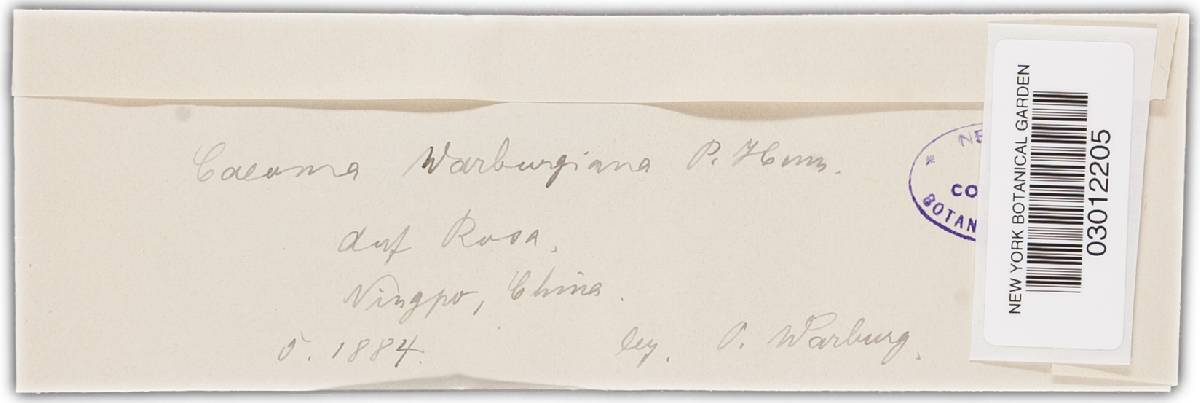 Caeoma Warburgiana P. Henn.
auf Rosa.
Ningpo, China.
5. 1884.
leg. O. Warburg.
* NE
CO
BOTAN
NEW YORK BOTANICAL GARDEN
03012205